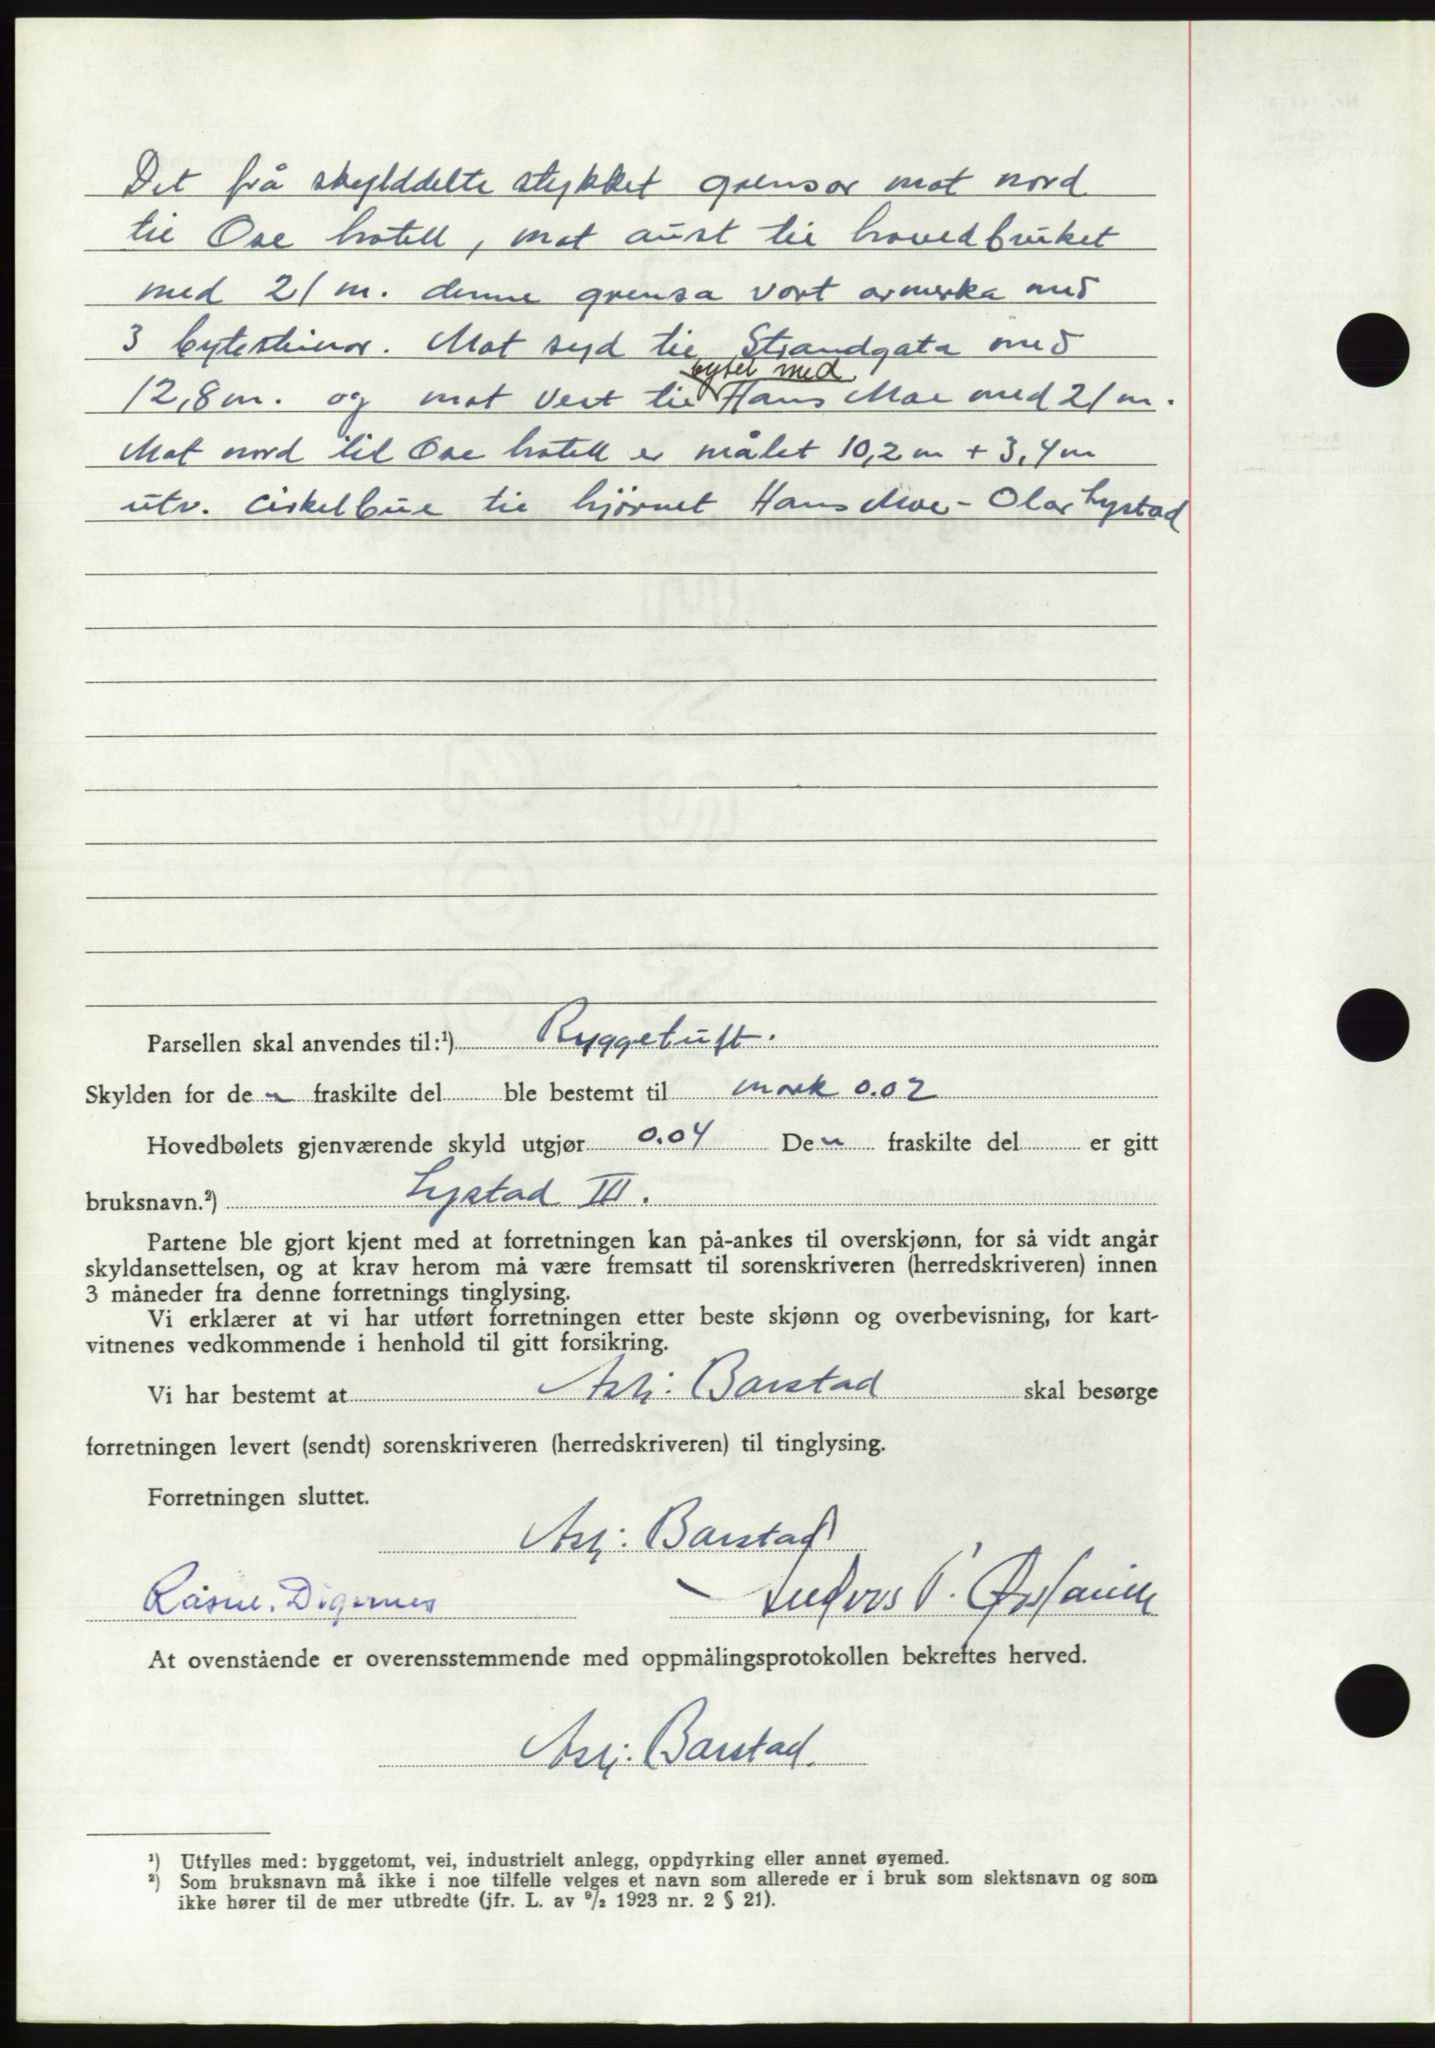 Det frå skylddelte stykket grensar mot nord
til Ose hotell, mot aust til hovedbruket
med 21 m. denne grensa vart avmerka med
3 bytesteinar. Mot syd til Strandgata med
bytet med
12,8 m. og mot Vest til Hans Moe med 21 m.
Mot nord til Ose hotell er målet 10,2 m + 3,4 m
utv. cirkelbue til hjørnet Hans Moe - Olav Lystad
Parsellen skal anvendes til:¹) Byggetuft.
Skylden for den fraskilte del ble bestemt til mark 0.02
Hovedbølets gjenværende skyld utgjør 0.04 Den fraskilte del er gitt
bruksnavn.²) Lystad III.
Partene ble gjort kjent med at forretningen kan på-ankes til overskjønn, for så vidt angår
skyldansettelsen, og at krav herom må være fremsatt til sorenskriveren (herredskriveren) innen
3 måneder fra denne forretnings tinglysing.
Vi erklærer at vi har utført forretningen etter beste skjønn og overbevisning, for kart-
vitnenes vedkommende i henhold til gitt forsikring.
Vi har bestemt at Asbj. Barstad skal besørge
forretningen levert (sendt) sorenskriveren (herredskriveren) til tinglysing.
Forretningen sluttet.
Asbj. Barstad
Rasm. Digernes Anders P.
At ovenstående er overensstemmende med oppmålingsprotokollen bekreftes herved.
Asbj. Barstad.
¹) Utfylles med: byggetomt, vei, industrielt anlegg, oppdyrking eller annet øyemed.
²) Som bruksnavn må ikke i noe tilfelle velges et navn som allerede er i bruk som slektsnavn og som
ikke hører til de mer utbredte (jfr. L. av ⁹/₂ 1923 nr. 2 § 21).